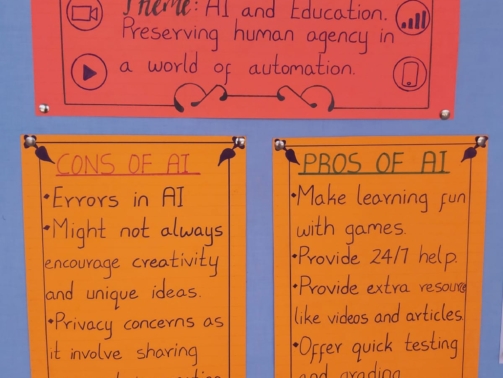 Theme: AI and Education.
Preserving human agency in
a world of automation.
CONS OF AI
•Errors in AI
•Might not always
encourage creativity
and unique ideas.
•Privacy concerns as
it involve sharing
PROS OF AI
•Make learning fun
with games.
•Provide 24/7 help.
•Provide extra resource
like videos and articles.
•Offer quick testing
and grading